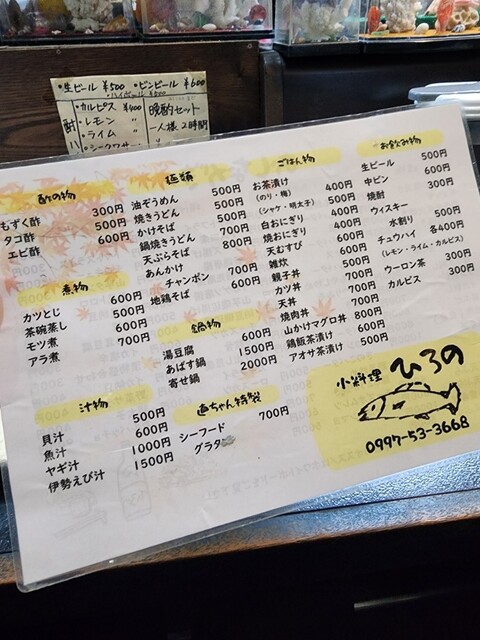 ・生ビール ¥500 ・ビンビール ¥600
・ハイボール ¥500
酎ハイ
・カルピス ¥400
・レモン 〃
・ライム 〃
・シークワサー
晩酌セット
一人様 2時間
酢の物
もずく酢 300円
タコ酢 500円
エビ酢 600円
煮物
カツとじ 600円
茶碗蒸し 500円
モツ煮 600円
アラ煮 700円
汁物
貝汁 500円
魚汁 600円
ヤギ汁 1000円
伊勢えび汁 1500円
麺類
油ぞうめん 500円
焼きうどん 500円
かけそば 500円
鍋焼きうどん 700円
天ぷらそば 800円
あんかけ
チャンポン 700円
地鶏そば 600円
鍋物
湯豆腐 600円
あばす鍋 1500円
寄せ鍋 2000円
直ちゃん特製
シーフード 700円
グラタン
ごはん物
お茶漬け 400円
(のり・梅)
(シャケ・明太子) 500円
白おにぎり 400円
焼おにぎり 400円
天むすび 600円
雑炊 500円
親子丼 600円
カツ丼 700円
天丼 700円
焼肉丼 700円
山かけマグロ丼 800円
鶏飯茶漬け 600円
アオサ茶漬け 500円
お飲み物
生ビール 500円
中ビン 600円
焼酎 300円
ウィスキー
水割り 500円
チュウハイ 各400円
(レモン・ライム・カルピス)
ウーロン茶 300円
カルピス 300円
小料理 ひろの
0997-53-3668